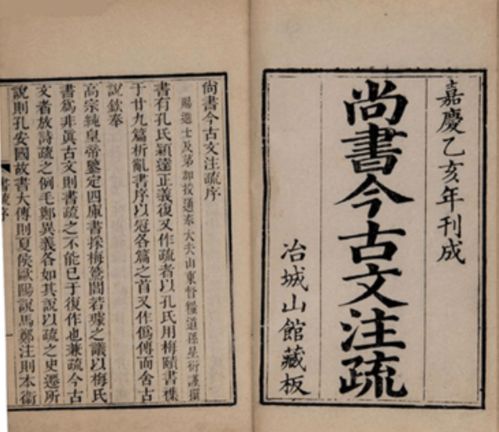 嘉慶乙亥年刊成
尚書今古文注疏
冶城山館藏板
尚書今古文注疏序
賜進士及第卸授通奉大夫山東督糧道孫星衍謹撰
書有孔氏穎達正義復又作疏者以孔氏用梅賾書襍
于廿九篇析亂書序以冠各篇之首又作僞傳而舍古
說欽奉
高宗純皇帝鑒定四庫書採梅鷟閻若璩之議以梅氏
書爲非眞古文則書疏之不能已于復作也兼疏今古
文者放詩疏之例毛鄭異義各如其說以疏之史遷所
說則孔安國故書大傳則夏侯歐陽說馬鄭注則本衛
書疏序